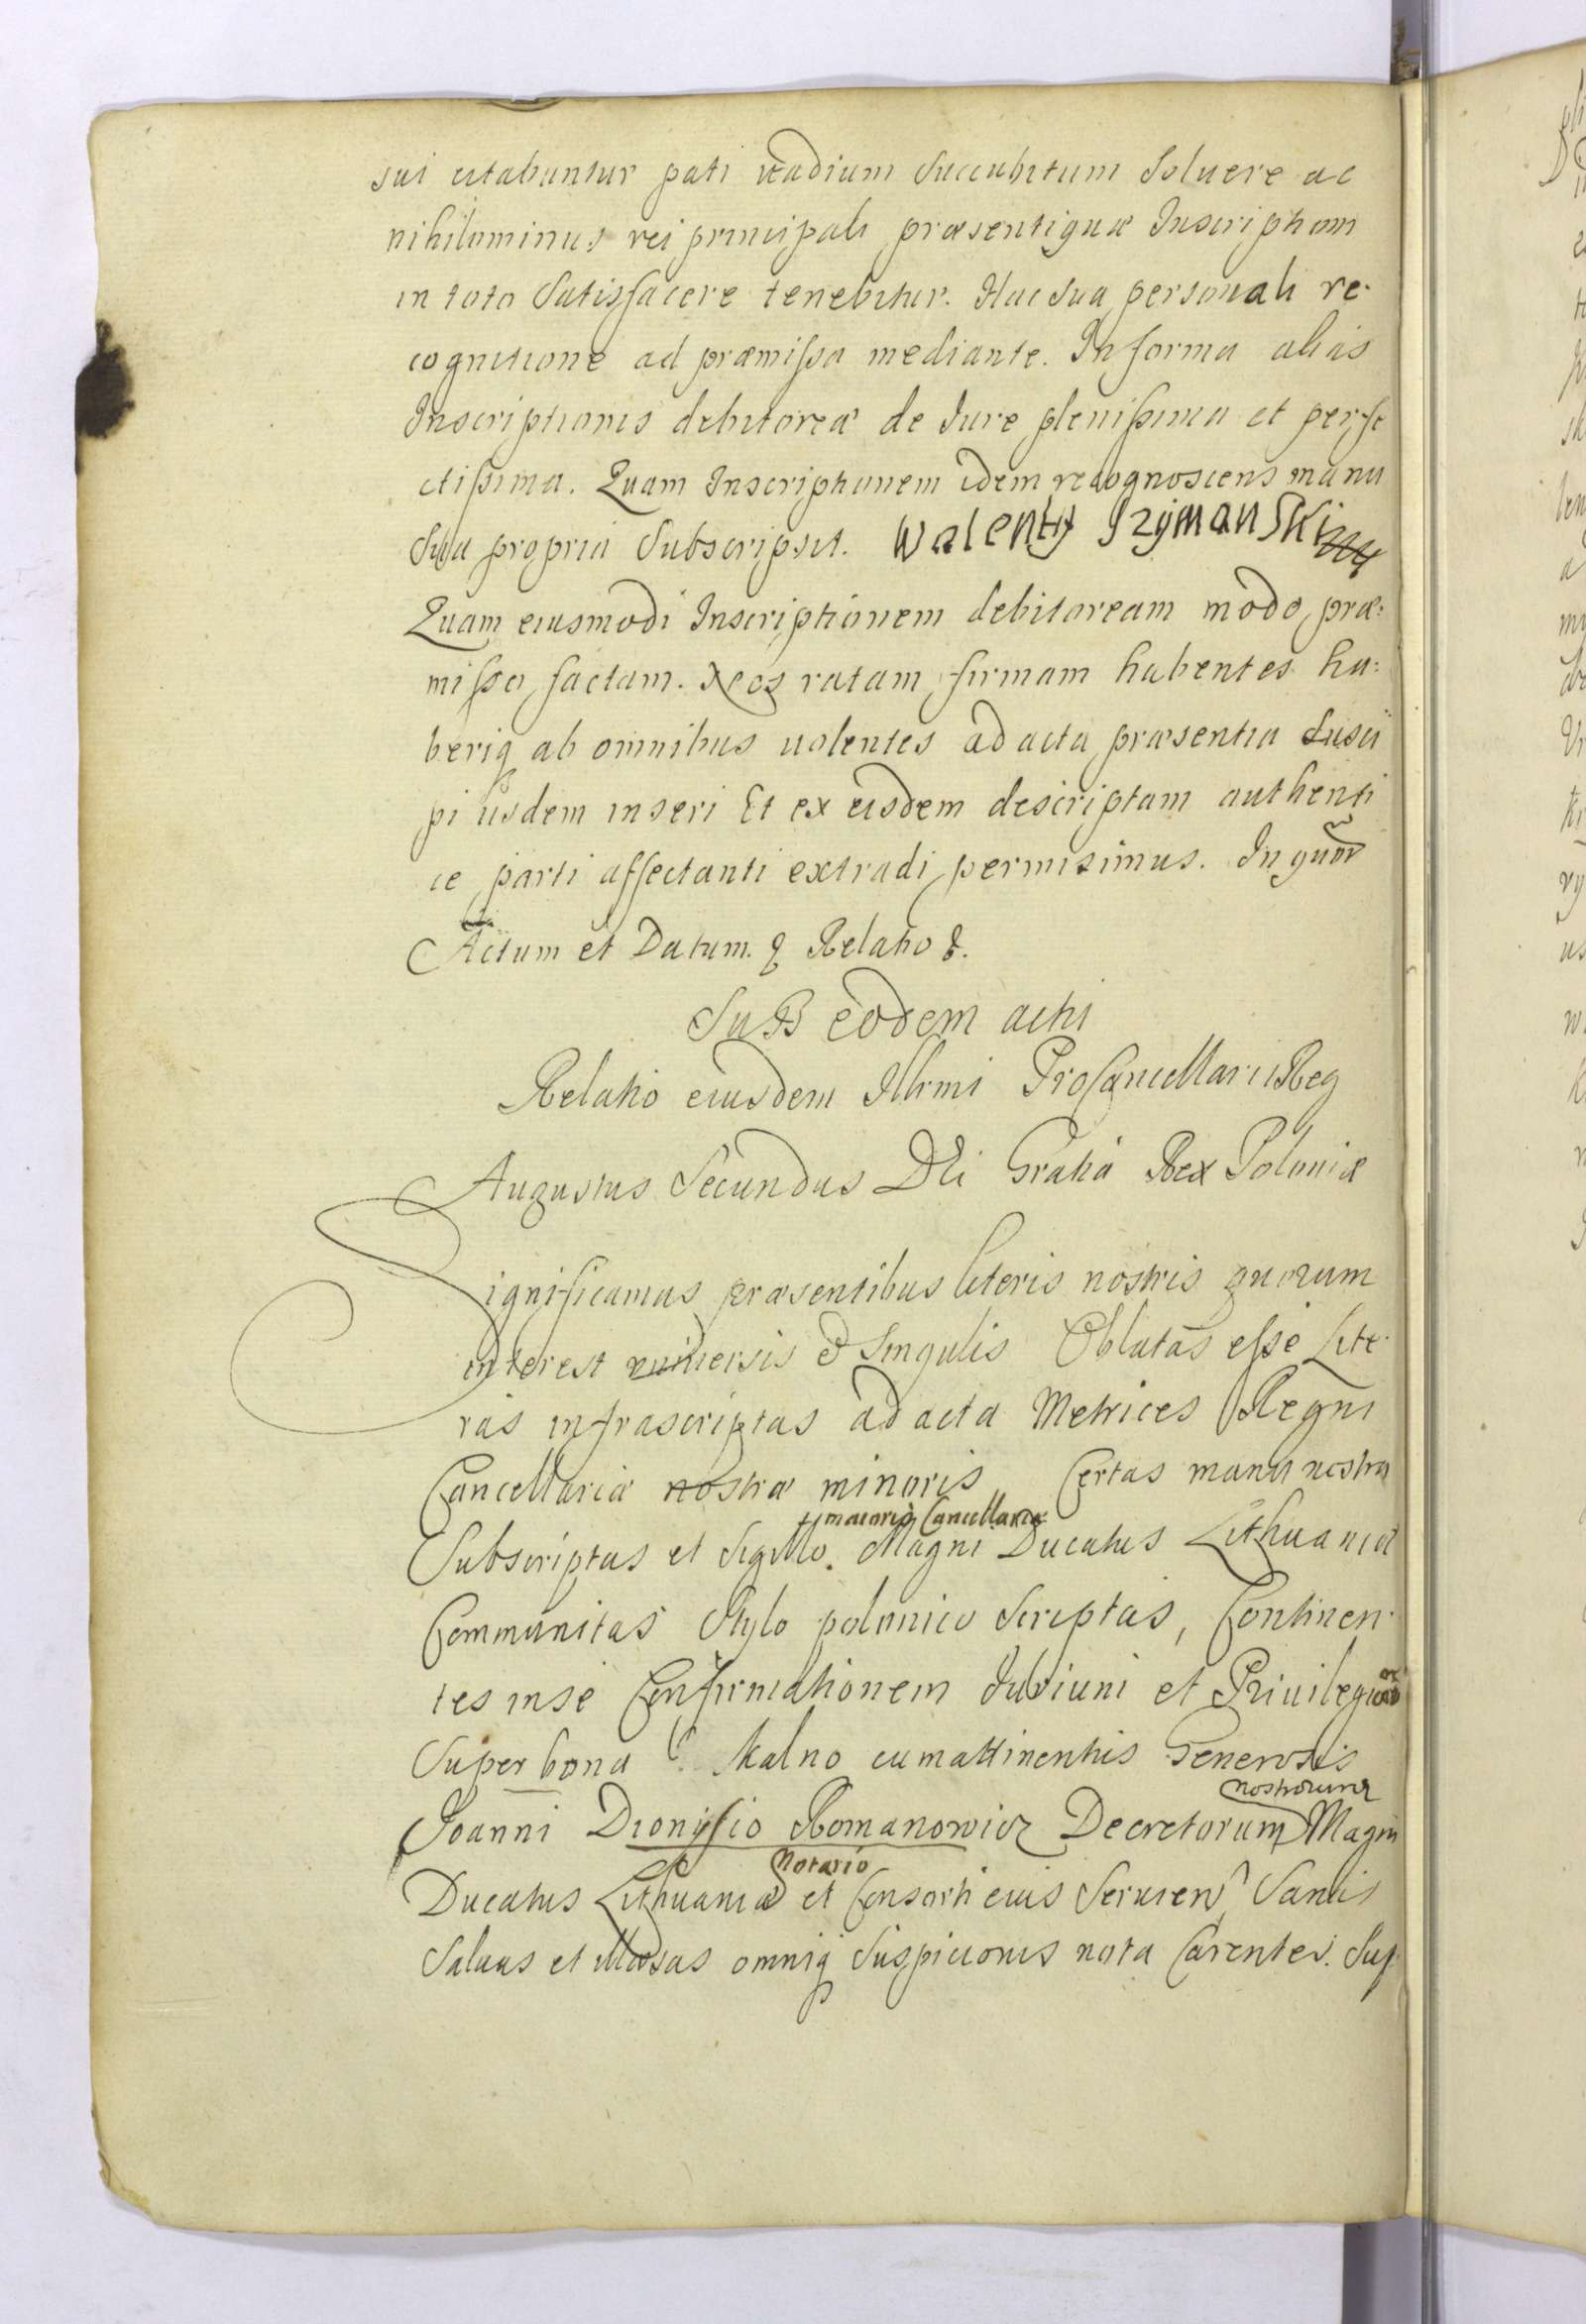 sui citabuntur pati vadium succubitum soluere ac
nihilominus rei principali præsentiquæ Inscriptioni
in toto Satisfacere tenebitur. Hac sua personali re-
cognitione ad præmissa mediante. In forma alias
Inscriptionis debitoreæ de Iure plenissima et perfe
ctissima. Quam Inscriptionem idem recognoscens manu
sua propria Subscripsit. Walenty Szÿmanski
Quam eiusmodi Inscriptionem debitoream modo præ:
misso factam. Nos ratam firmam habentes ha:
beriq ab omnibus uolentes ad acta præsentia Susci
pi iisdem inseri Et ex eisdem descriptam authenti
ce parti affectanti extradi permisimus. In quor
Actum et Datum. & Relatio &.
SuB eodem actu
Relatio eiusdem Illrmi ProCancellarii Reg
Augustus Secundus DEi Gratia Rex Poloniæ
Significamus præsentibus literis nostris quorum
interest uniuersis & Singulis Oblatas esse Lite-
ras infrascriptas ad acta Metrices Regni
Cancellariæ nostræ minoris Certas manu nostra
maioris Cancellariæ
Subscriptas et Sigillo Magni Ducatus Lithuaniæ
Communitas Stylo polonico Scriptas, Continen-
tes in se Confirmationem Iurium et Priuilegior
Super bona Skalno cum attinentiis Generosis
nostrorum
Joanni Dionysio Romanowicz Decretorum Magni
Notario
Ducatus Lithuaniæ et Consorti eius Seruien Sanas
Saluas et illæsas omniq Suspicionis nota Carentes. Sup